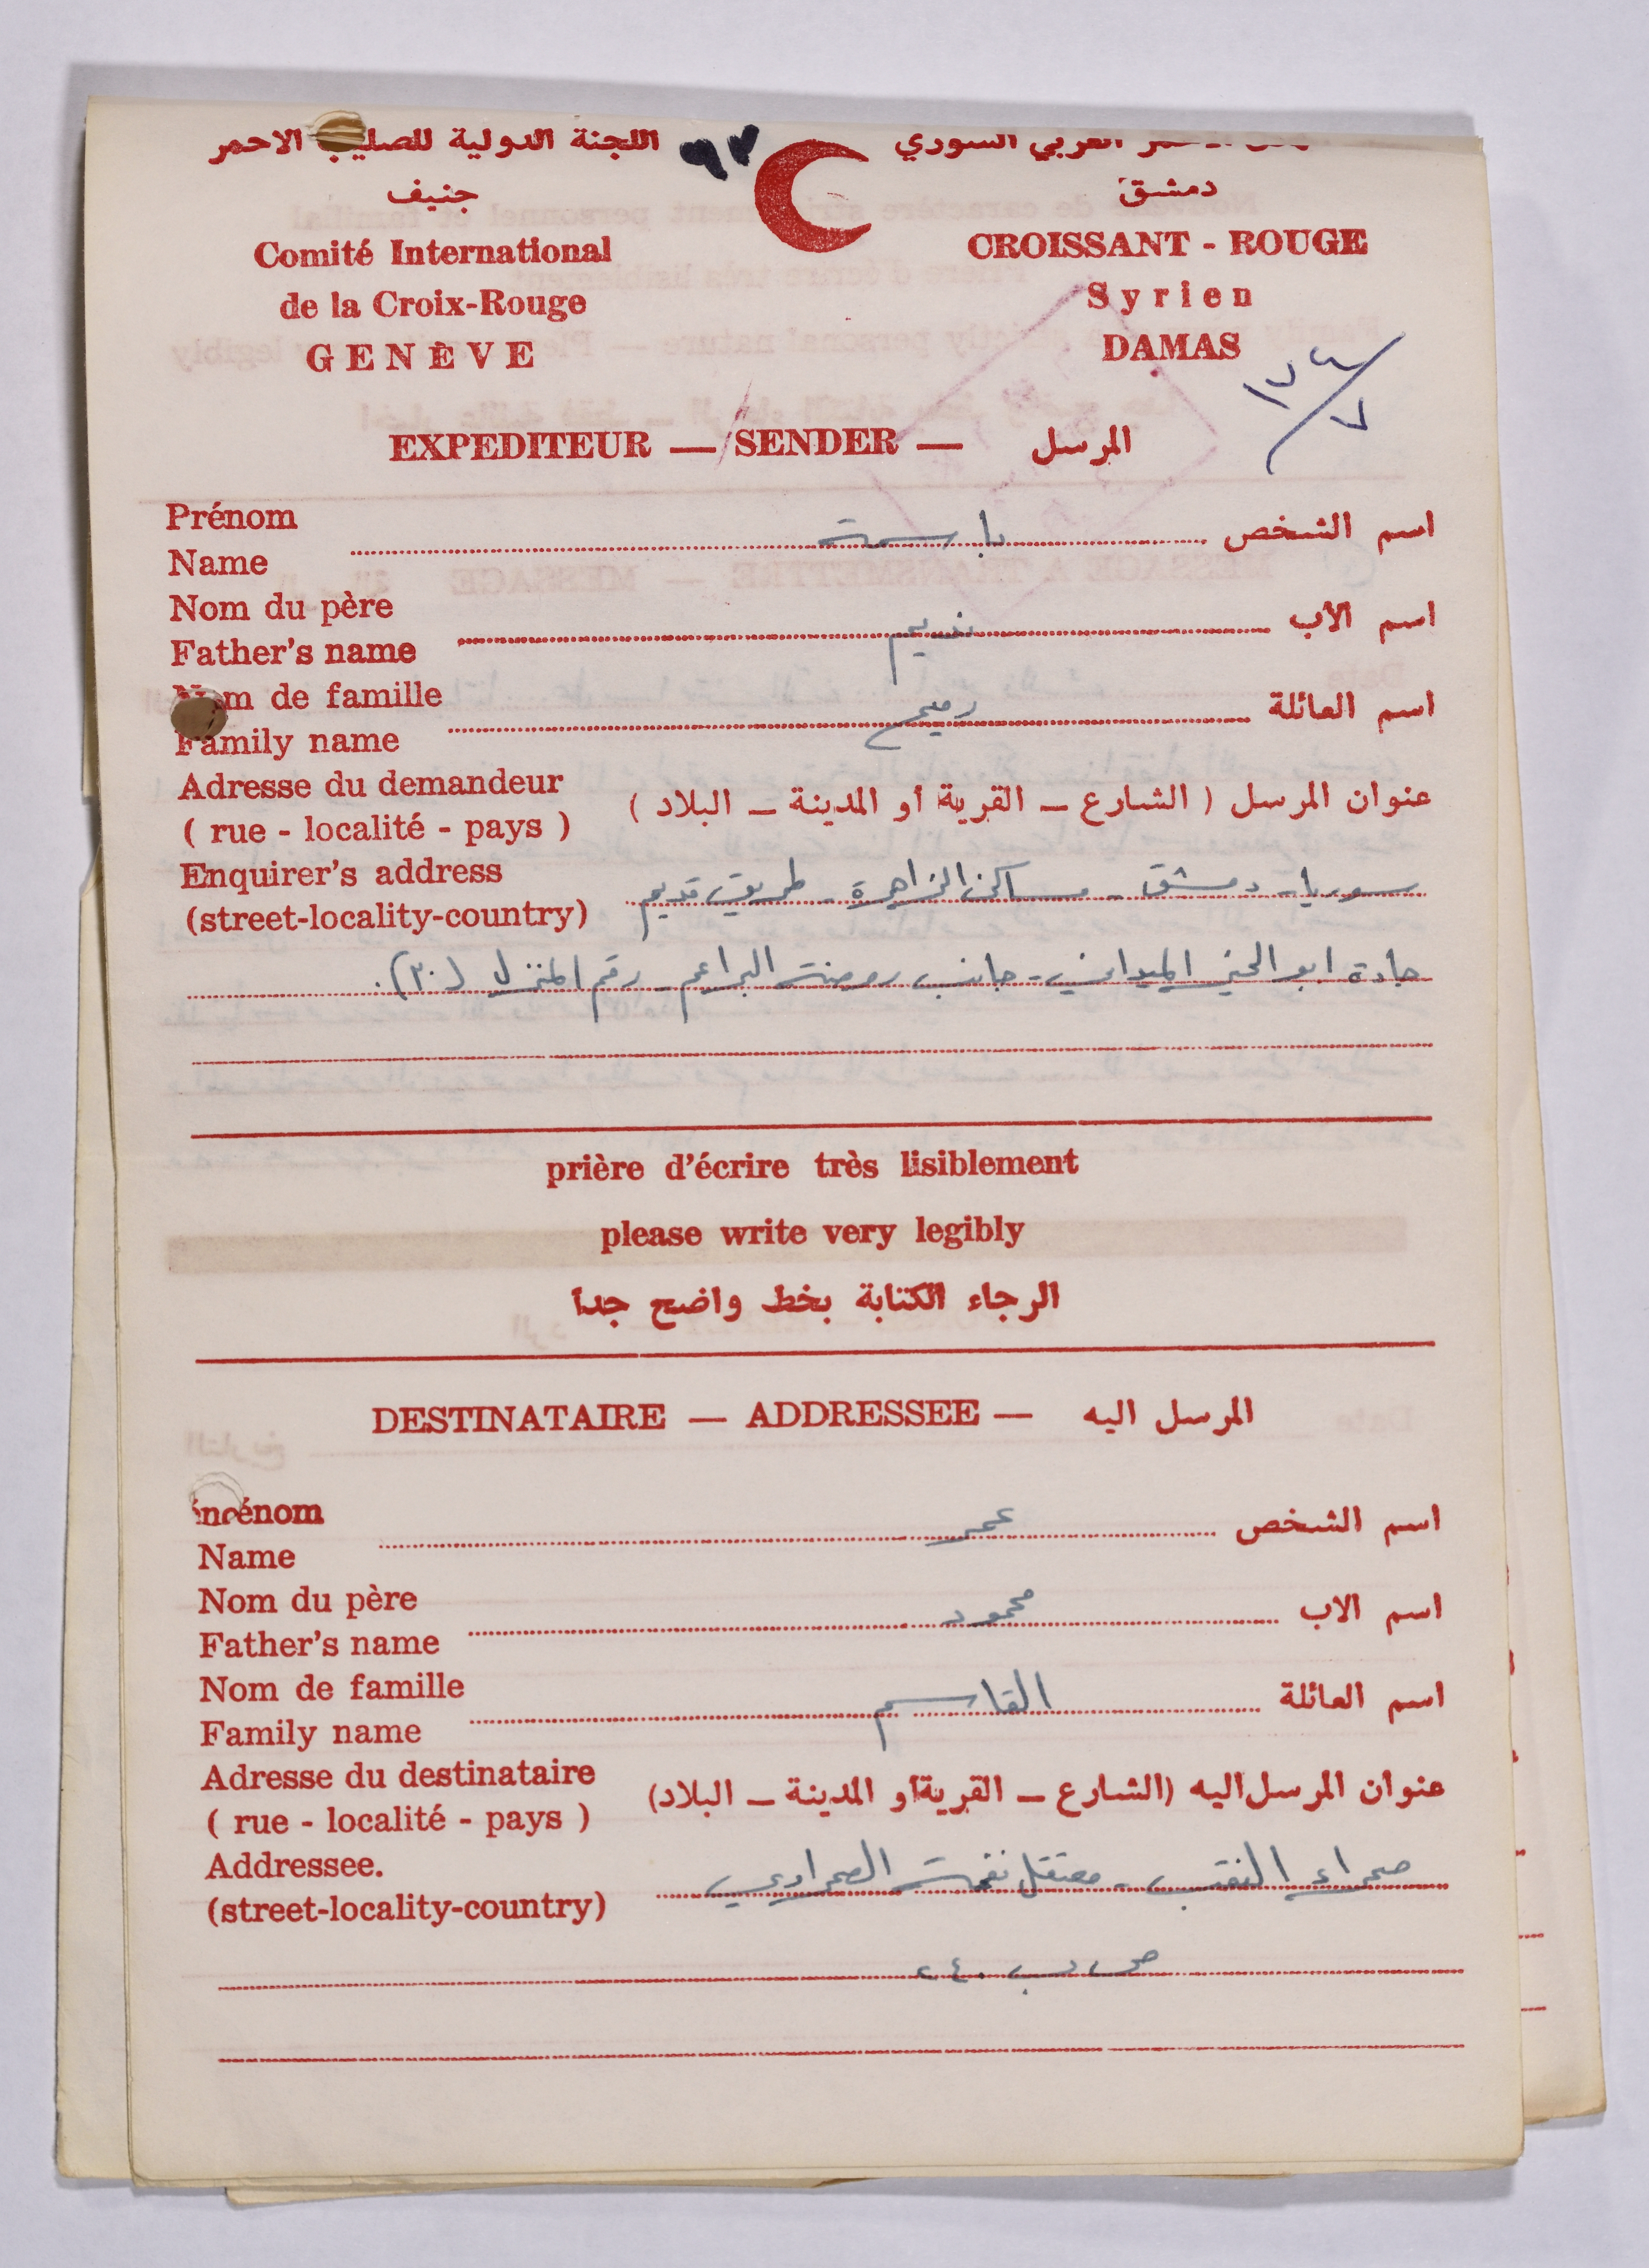 اللجنة الدولية للصليب الاحمر
جنيف
Comité International
de la Croix-Rouge
GENÈVE
٩٧
العربي السوري
دمشق
CROISSANT - ROUGE
Syrien
DAMAS
١٧٤/٧
EXPEDITEUR — SENDER — المرسل
Prénom
Name باسمة اسم الشخص
Nom du père
Father's name نديم اسم الأب
Nom de famille
Family name رميح اسم العائلة
Adresse du demandeur
( rue - localité - pays ) عنوان المرسل ( الشارع – القرية أو المدينة – البلاد )
Enquirer's address
(street-locality-country) سوريا - دمشق - مساكن الزاهرة - طريق قديم
جادة ابو الخير الميداني - جانب روضة البراعم - رقم المنزل (٣٠).
prière d'écrire très lisiblement
please write very legibly
الرجاء الكتابة بخط واضح جدا
DESTINATAIRE — ADDRESSEE — المرسل اليه
énom
Name عمر اسم الشخص
Nom du père
Father's name محمود اسم الاب
Nom de famille
Family name القاسم اسم العائلة
Adresse du destinataire
( rue - localité - pays ) عنوان المرسل اليه (الشارع – القرية أو المدينة – البلاد)
Addressee.
(street-locality-country) صحراء النقب - معتقل نفحة الصحراوي
ص ب ٢٤٠